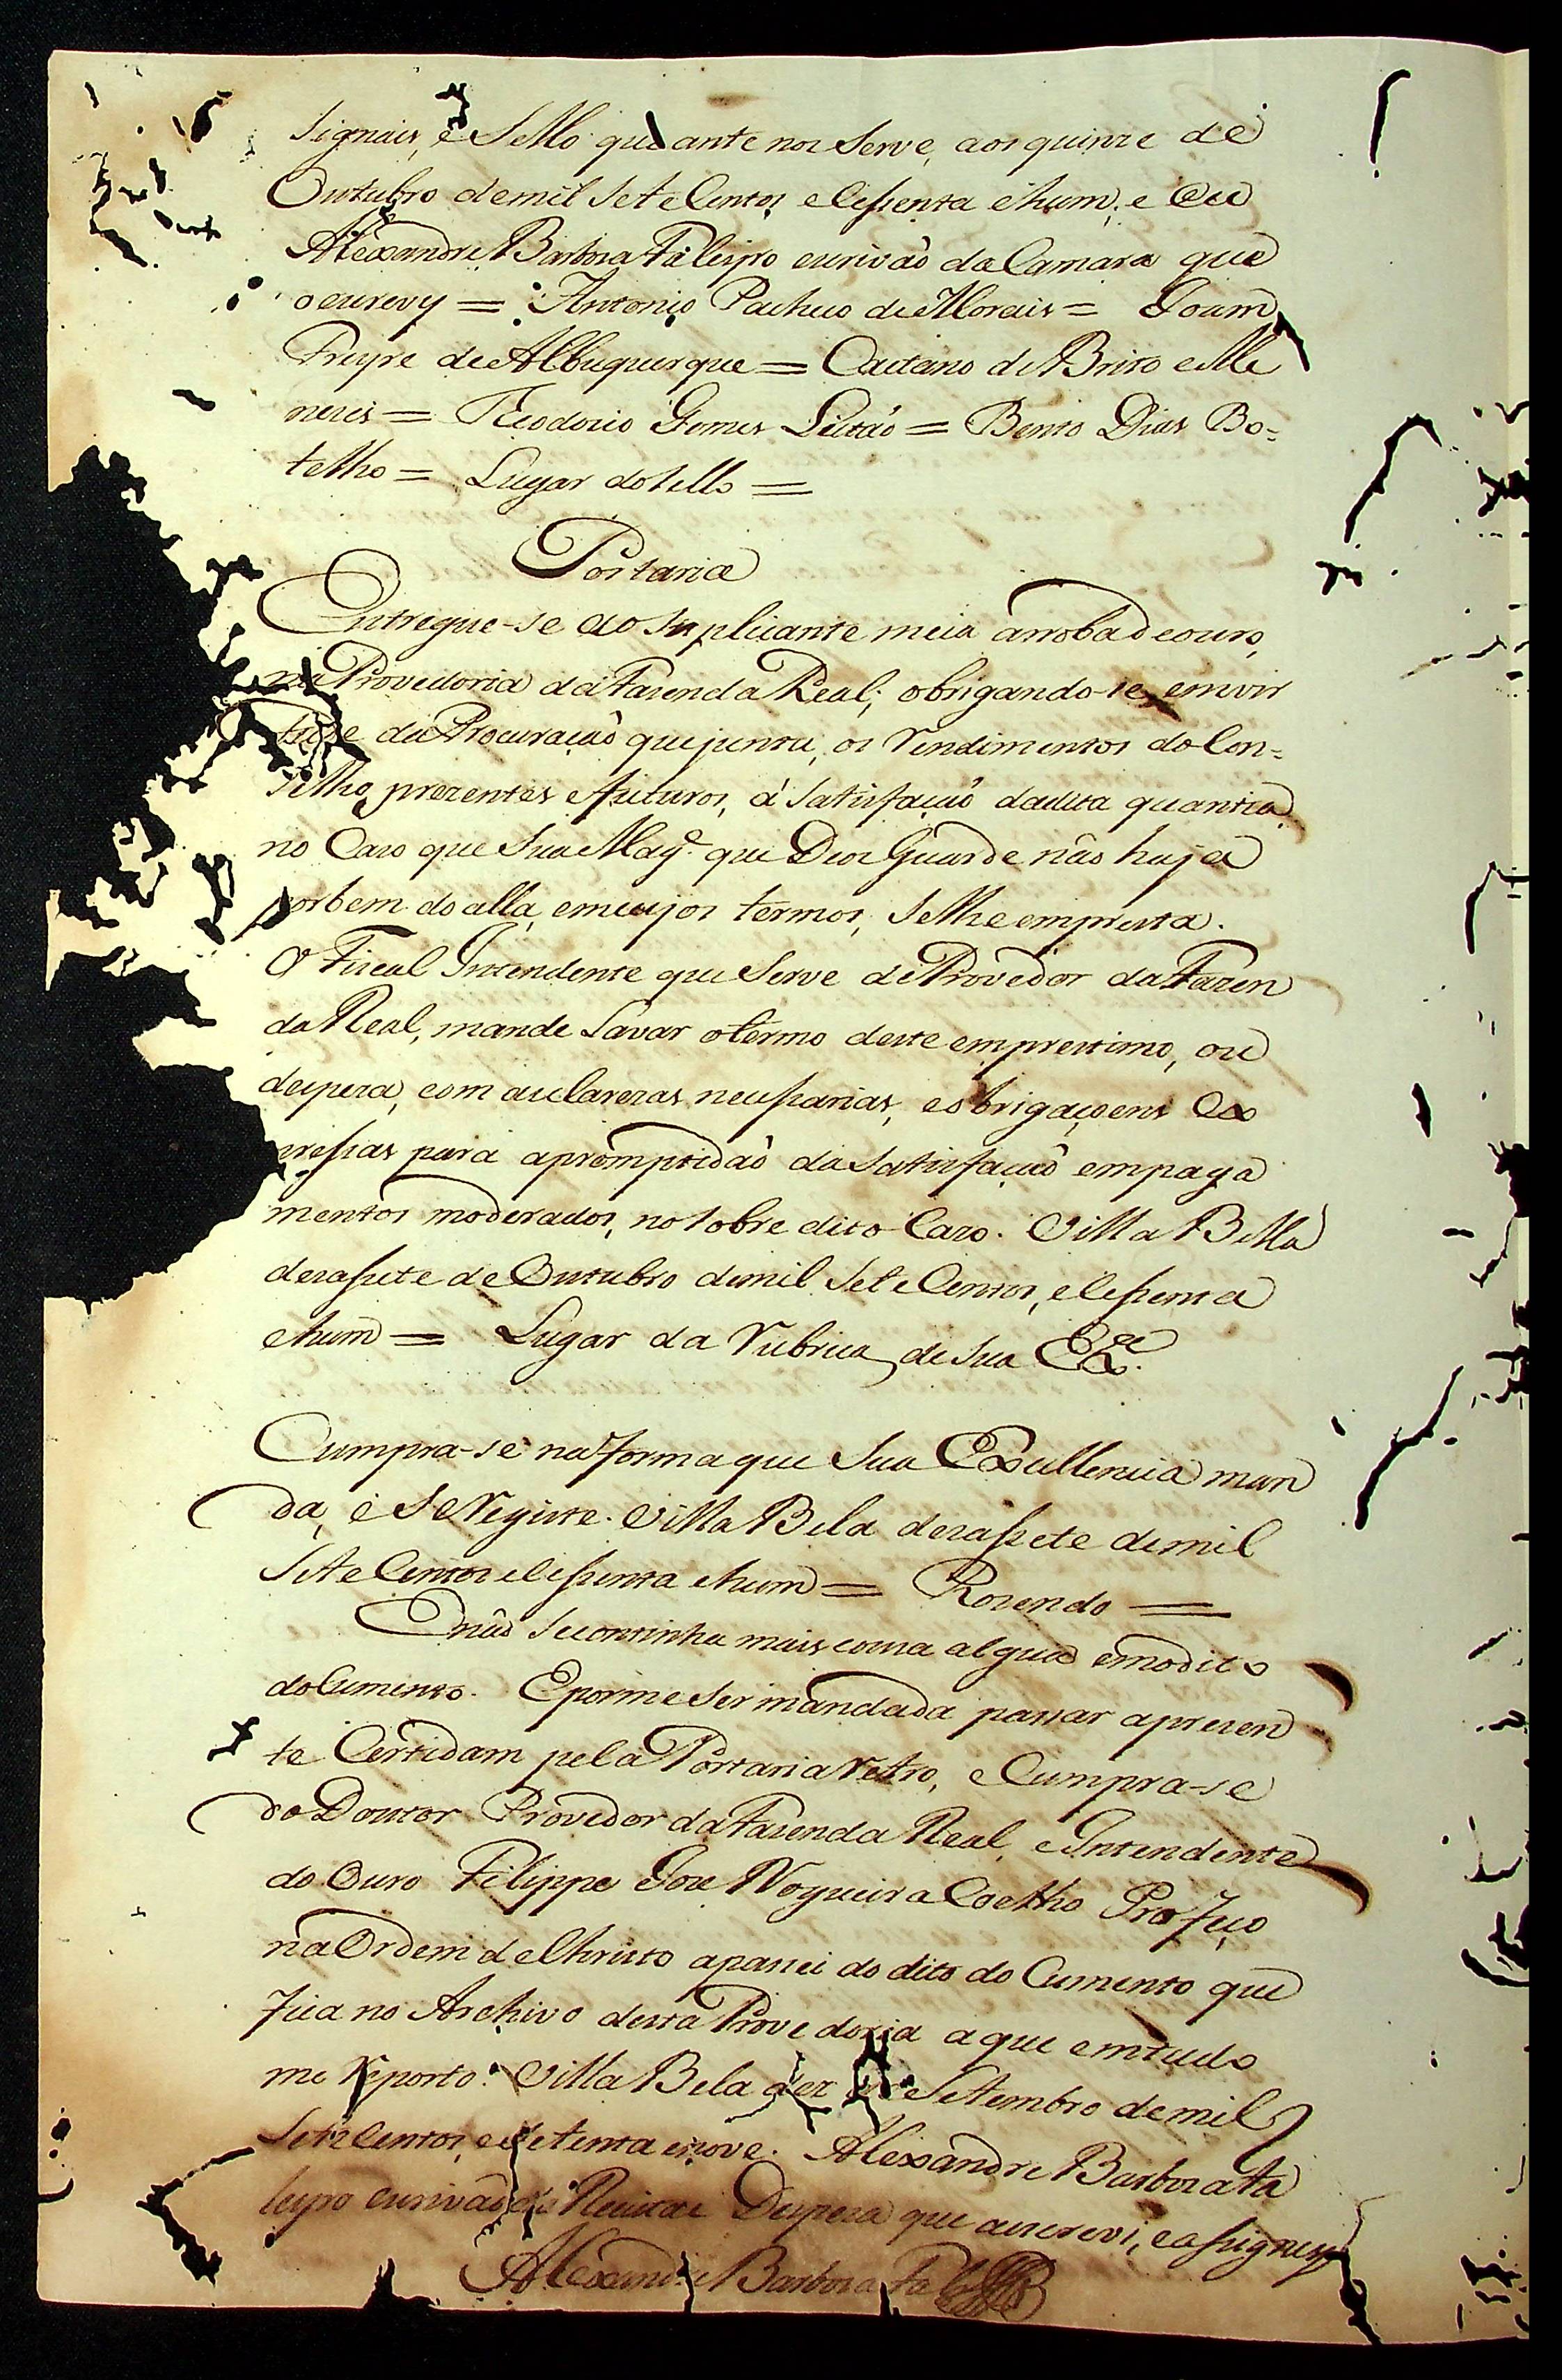 Signais, e Sello que ante nos Serve, aos quinze de
Outubro demil Sete Centos eSessenta ehum; e Eu
Alexandre Barboza Faleiro escrivaõ da Camara que
o escrevy = Antonio Pacheco de Morais = Joam
Freyre de Albuquerque = Caetano de Brito e Me
nezes = Teodozio Gomes Leitaõ = Bento Dias Bo=
telho = Lugar do Sello =
Portaria
Entregue-se ao Suplicante meia arroba de ouro,
na Provedoria da Fazenda Real; obrigando-se, emvir
tude da Procuraçaõ que junta, os Rendimentos do Con=
selho, prezentes efuturos, á Satisfaçaõ dadita quantia
no Cazo que Sua Mag.e que Deos Guarde naõ haja
por bem doalla, emcujos termos, Selhe empresta.
O Fiscal Intendente que Serve de Provedor da Fazen
da Real, mande Lavar otermo deste emprestimo, ou
despeza, com asclarezas necessarias, eobrigaçoens Ex
pressas para apromptidaõ da Satisfaçaõ empaga
mentos moderados, no Sobre dito Cazo. Villa Bella
dezassete de Outubro demil Sete Centos, eSessenta
ehum = Lugar da Rubrica de Sua Ex.ce
Cumpra-se na forma que Sua Excellencia man
da, e Se Registe. Villa Bela dezassete demil
Sete Centos eSessenta ehum = Rozendo =
Enaõ Secontinha mais couza algua emodito
doCumento. Eporme Ser mandada passar aprezen
te Certidam pela Portaria retro, eCumpra-se
do Doutor Provedor da Fazenda Real, e Intendente
do Ouro Filippe Joze Nogueira Coelho Professo
na Ordem de Christo apassei do dito do Cumento que
fica no Archivo desta Provedoria aque emtudo
me Reporto. Villa Bela dez de Setembro demil
Sete Centos, eSetenta enove. Alexandre Barboza Fa
leiro escrivaõ da Receita e Despeza que aescrevi, eassigney
Alexandre Barboza